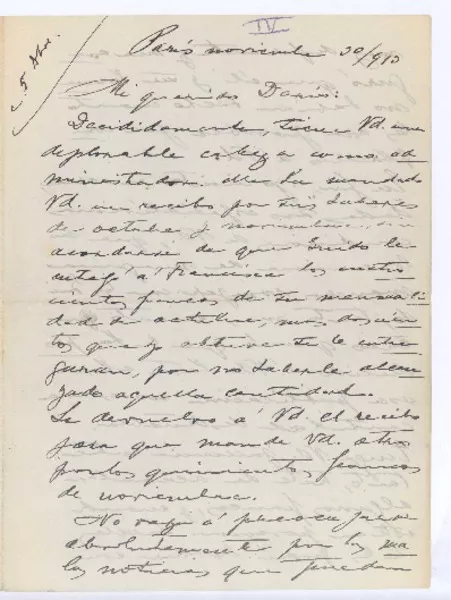 IV
París noviembre 30/913
Mi querido Darío:
Decididamente, tiene Vd. una
deplorable cabeza como ad
ministrador. Me ha mandado
Vd. un recibo por sus haberes
de octubre y noviembre, sin
acordarse de que Guido le
entregó á Francisca los cuatro
cientos francos de su mensuali
dad de octubre, mas doscien
tos que yo obtuve se le entre
garan, por no haberle alcan
zado aquella cantidad.
Le devuelvo á Vd. el recibo
para que mande Vd. otro
por los quinientos francos
de noviembre.
No vaya á preocuparse
absolutamente por las ma
las noticias que puedan